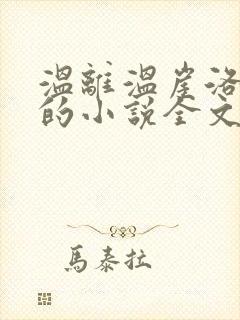 溫離溫崖洛
的小說全文
馬泰拉